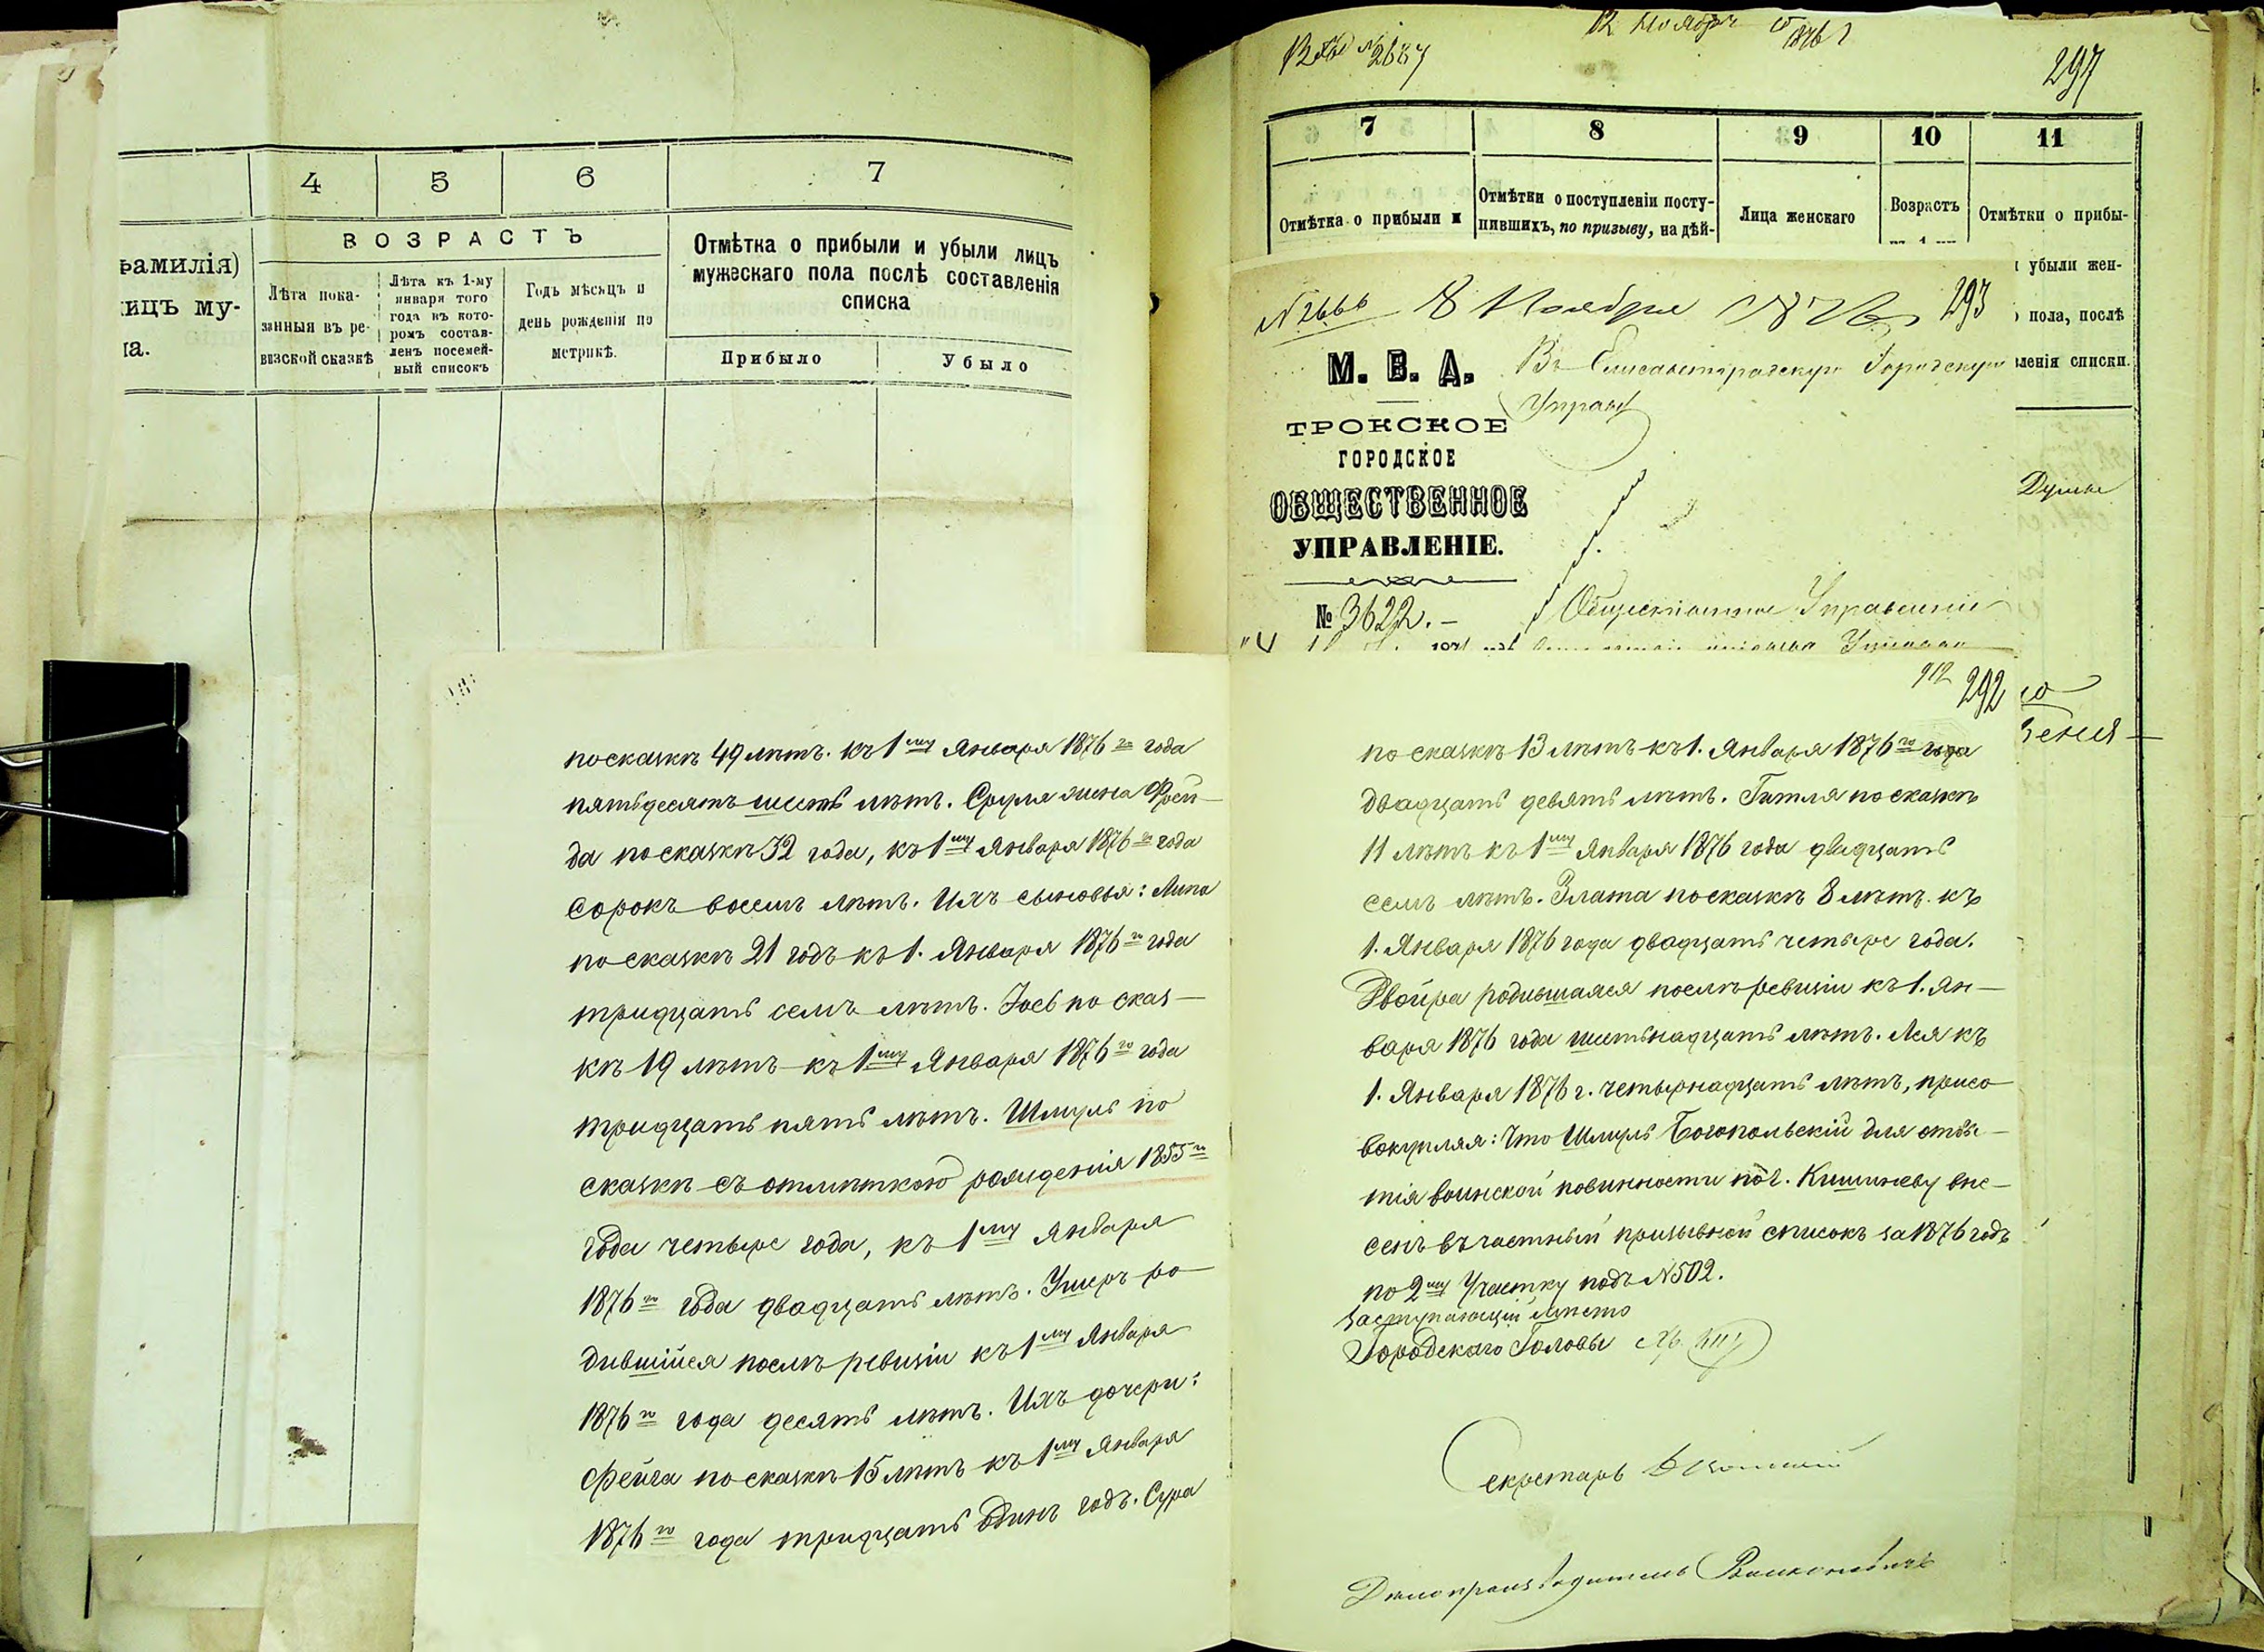 4 5 6 7
ВОЗРАСТЪ
фамилія)
лицъ му-
ла.
Лѣта пока-
занныя въ ре-
визской сказкѣ
Лѣта къ 1-му
января того
года въ кото-
ромъ состав-
ленъ посемей-
ный списокъ
Годъ мѣсяцъ и
день рожденія по
метрикѣ.
Отмѣтка о прибыли и убыли лицъ
мужескаго пола послѣ составленія
списка
Прибыло Убыло
по сказкѣ 49 лѣтъ. къ 1му Января 1876го года
пятьдесятъ шесть лѣтъ. Сруля жена Фрей-
да по сказкѣ 32 года, къ 1му Января 1876го года
сорокъ восемь лѣтъ. Ихъ сыновья: Липа
по сказкѣ 21 годъ къ 1. Января 1876го года
тридцать семь лѣтъ. Іось по сказ-
кѣ 19 лѣтъ къ 1му Января 1876го года
тридцать пять лѣтъ. Шмуль по
сказкѣ съ отмѣткою рожденія 1855го
года четыре года, къ 1му Января
1876го года двадцать лѣтъ. Ушеръ ро-
дившійся послѣ ревизіи къ 1му Января
1876го года десять лѣтъ. Ихъ дочери:
Фейга по сказкѣ 15 лѣтъ къ 1му Января
1876го года тридцать одинъ годъ. Сура
12 Ноября 1876 г
297
7 8 9 10 11
Отмѣтка о прибыли и
Отмѣтки о поступленіи посту-
пившихъ, по призыву, на дѣй-
Лица женскаго
Возрастъ
Отмѣтки о прибы-
и убыли жен-
о пола, послѣ
вленія списки.
№2666 8 Ноября 1876 293
М. В. Д.
ТРОКСКОЕ
ГОРОДСКОЕ
ОБЩЕСТВЕННОЕ
УПРАВЛЕНІЕ.
№ 3622.
Въ Елисаветградскую Городскую
Управу
Общественное Управленіе
Думы
292
по сказкѣ 13 лѣтъ къ 1. Января 1876го года
двадцать девять лѣтъ. Гитля по сказкѣ
11 лѣтъ къ 1му Января 1876 года двадцать
семь лѣтъ. Злата по сказкѣ 8 лѣтъ къ
1. Января 1876 года двадцать четыре года.
Двойра родившаяся послѣ ревизіи къ 1. Ян-
варя 1876 года шестьнадцать лѣтъ. Лея къ
1. Января 1876 г. четырнадцать лѣтъ, присо-
вокупляя: Что Шмуль Богопольскій для отбы-
тія воинской повинности по г. Кишиневу вне-
сенъ въ частный призывной списокъ за 1876 годъ
по 2му Участку подъ №502.
Заступающій мѣсто
Городскаго Головы
Секретарь
Дѣлопроизводитель